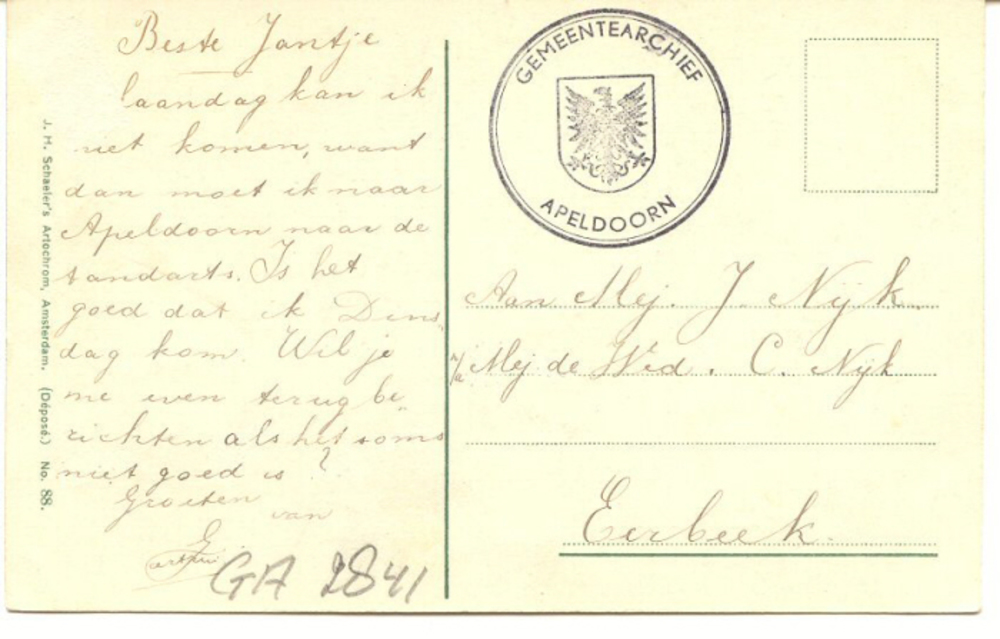 Beste Jantje
Maandag kan ik
niet komen, want
dan moet ik naar
Apeldoorn naar de
tandarts. Is het
goed dat ik Dins-
dag kom. Wil je
me even terug be-
richten als het soms
niet goed is?
Groeten
van
J. H. Schaefer's Artochrom, Amsterdam. (Déposé.) No. 88.
GA 2841
GEMEENTEARCHIEF
APELDOORN
Aan Mej. J. Nijk.
p/a Mej de Wed. C. Nijk
Eerbeek.